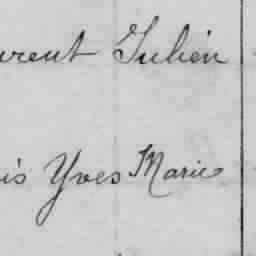 urent Julien
is Yves Marie